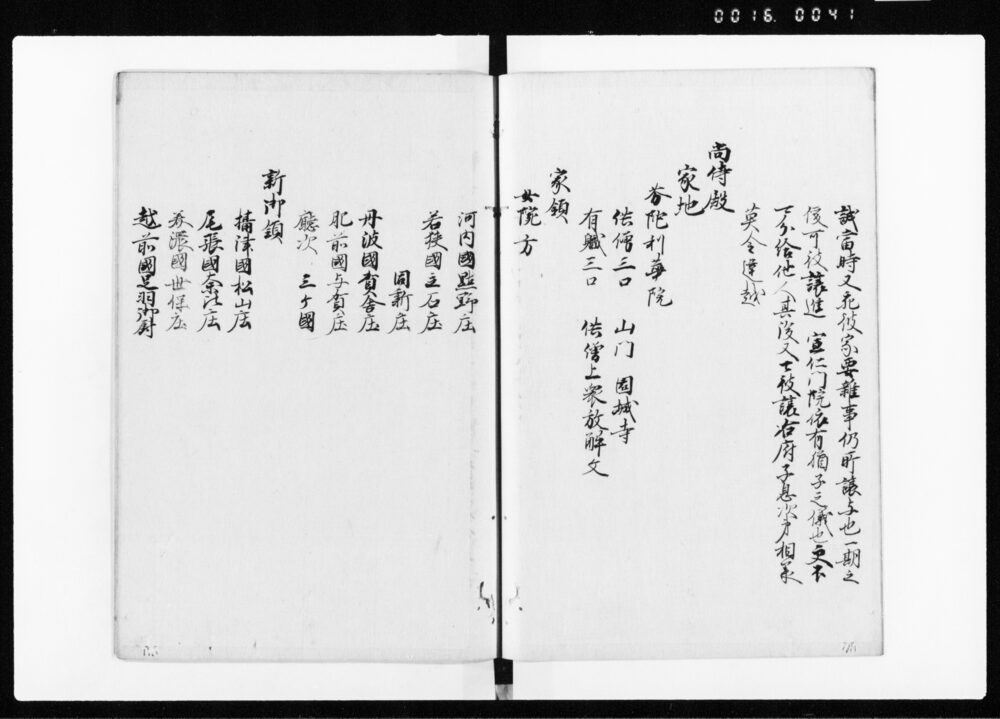 0016.0041
誠當時又充彼家要雜事仍所譲与也一期之
後可被譲進宣仁門院依有猶子之儀也更不
可分給他人其後又可被譲右府子息次才相承
莫令違越
尚侍殿
家地
芬陀利華院
供僧三口 山门 園城寺
有職三口 供僧上衆放解文
家領
女院方
河内國點野庄
若狭國立石庄
同新庄
丹波國賀舎庄
肥前國与賀庄
廳次 三ケ國
新御領
攝津國松山庄
尾張國
美濃國世保庄
越前國足羽御厨